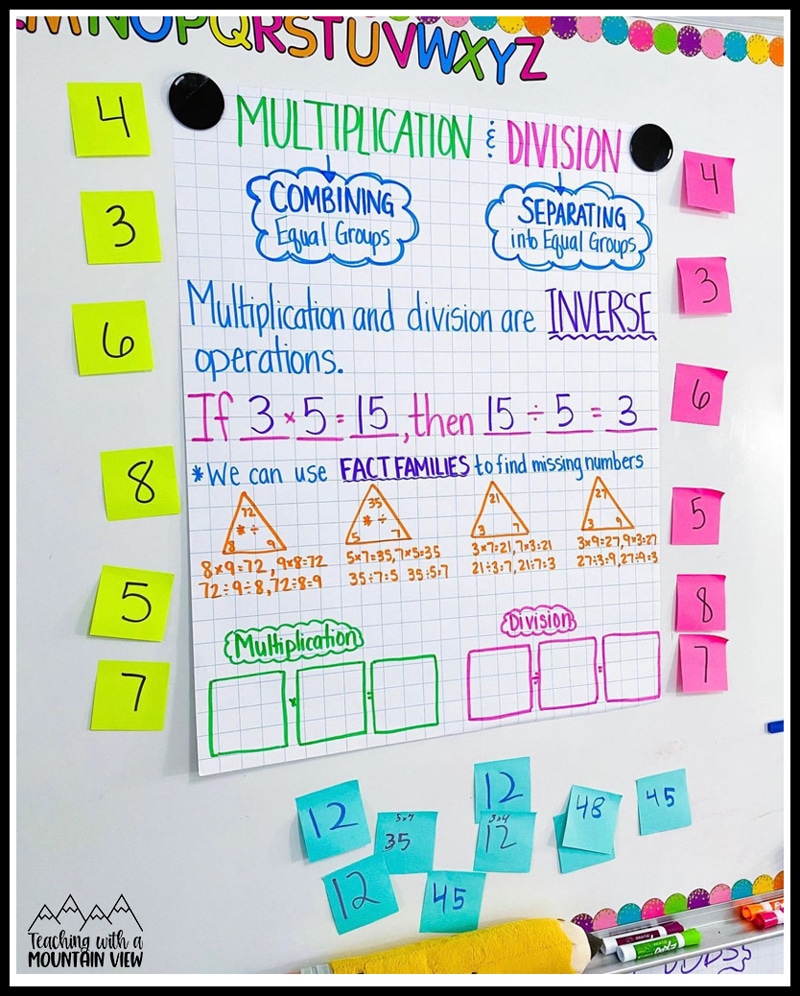 MNOPQRSTUVWXYZ
MULTIPLICATION & DIVISION
COMBINING
Equal Groups
SEPARATING
into Equal Groups
Multiplication and division are INVERSE
operations.
If 3 × 5 = 15, then 15 ÷ 5 = 3
*We can use FACT FAMILIES to find missing numbers
72
* ÷
8 9
8×9=72, 9×8=72
72÷9÷8, 72÷8=9
35
* ÷
5 7
5×7=35, 7×5=35
35÷7=5 35÷5=7
21
3 7
3×7=21, 7×3=21
21÷3=7, 21÷7=3
27
3 9
3×9=27, 9×3=27
27÷3=9, 27÷9=3
Multiplication
× =
Division
÷ =
4
3
6
8
5
7
4
3
6
5
8
7
12
5×7
35
12
12
3×4
12
45
48
45
Teaching with a
MOUNTAIN VIEW